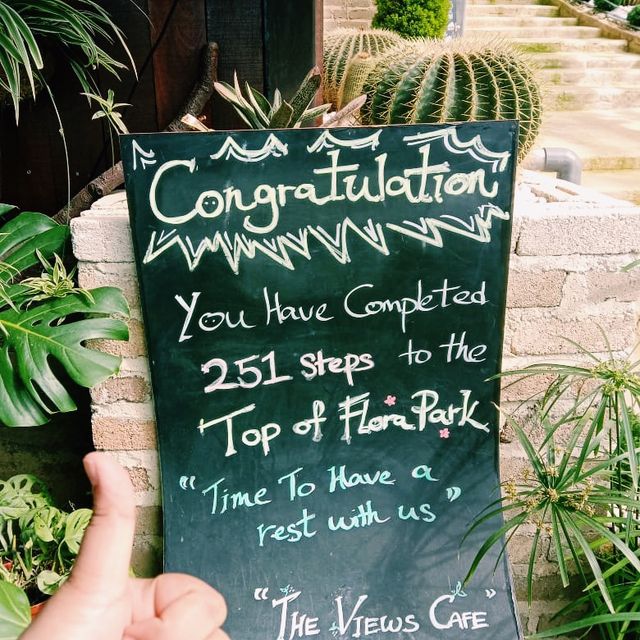 Congratulation
You Have Completed
251 steps to the
Top of Flora Park
"Time To Have a
rest with us"
"The Views Cafe"